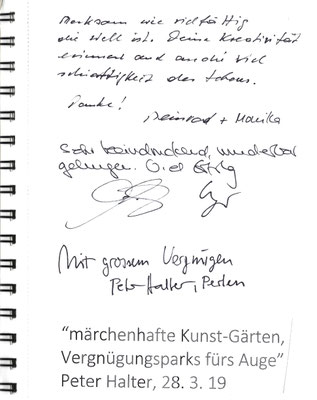 merksam wie vielfältig
die Welt ist. Deine Kreativität
erinnert auch an die Viel
schichtigkeit des Lebens.
Danke!
Meinrad + Monika
Sehr beeindruckend, wunderbar
gelungen. Viel Erfolg
Mit grossem Vergnügen
Peter Halter, Perlen
"märchenhafte Kunst-Gärten,
Vergnügungsparks fürs Auge"
Peter Halter, 28. 3. 19